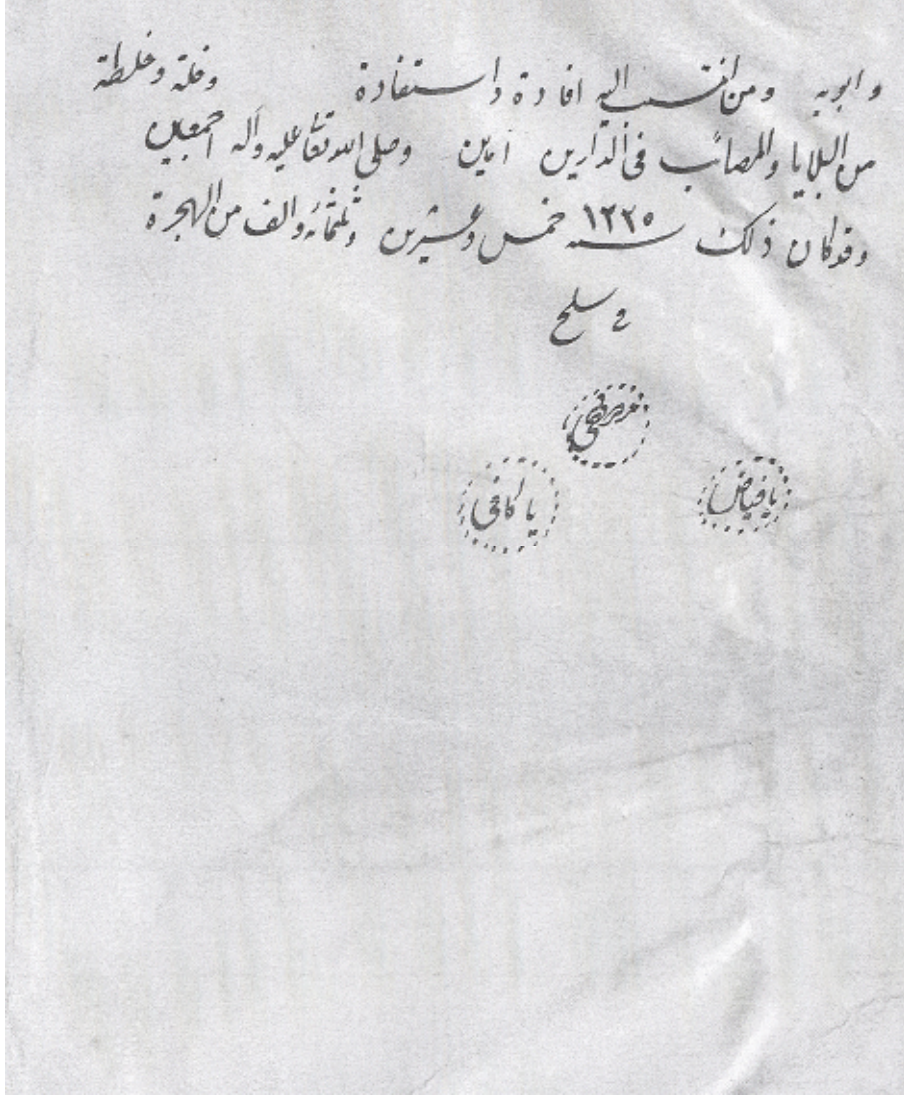 و ابويه ومن انتسب اليه افادة واستفادة وخلة وخلطة
من البلايا والمصائب فى الدارين آمين وصلى الله تعا عليه وآله اجمعين
وقد كان ذلك سنه ١٣٢٥ خمس وعشرين وثلثمائه والف من الهجرة
يا فياض
يا كافى